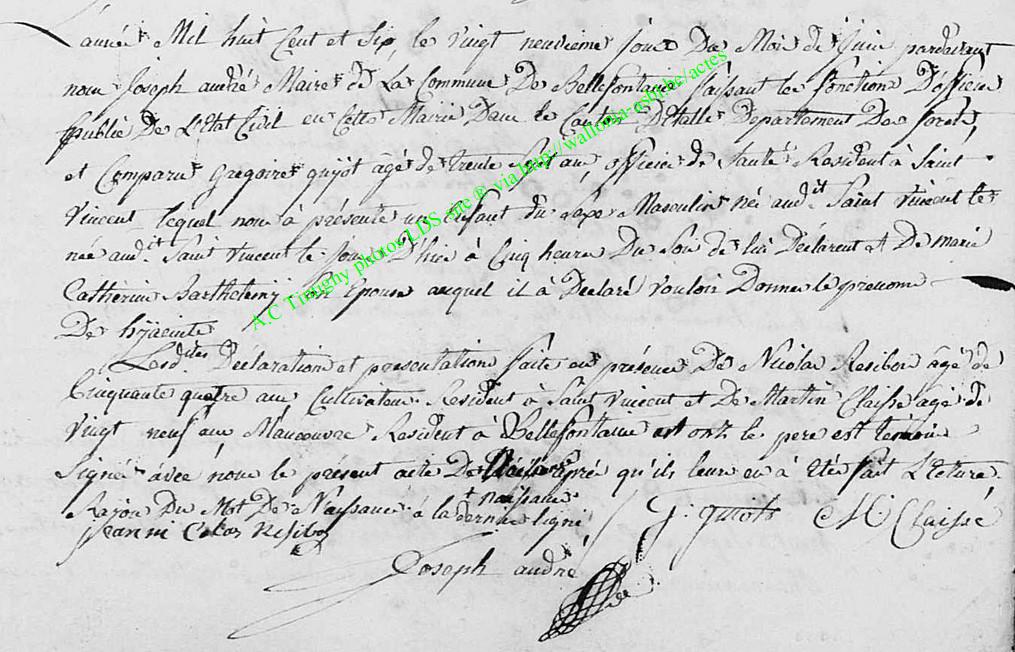 L'année Mil huit Cent et Six, le vingt neuvième jour Du Mois de Juin pardevant
nous Joseph andré Maire de La Commune De Bellefontaine faisant les fonctions D'officier
publié De L'Etat Civil en Cette Mairie Dans le Canton D'Etalle Departement De forets,
et Comparu Gregoire quiot agé de trente Sept ans officier de Santé Resident à Saint
Vincent lequel nous à présenté un Enfant du Sexe Masculin né audit Saint vincent le
née audit Saint Vincent le Jour D'hier à Cinq heures Du Soir de lui Déclarent et De marie
Catherine Barthelemy son Epouse auquel il à Declaré vouloir Donner le prenom
De hyacinte
Lesdites Déclaration et presentation faite en présence De Nicolas Resibois agé de
Cinquante quatre ans Cultivateur Resident à Saint Vincent et De Martin Claisse agé de
Vingt neuf ans Manoeuvre Resident à Bellefontaine et ont le pere est temoin
Signé avec nous le présent acte De apré qu'ils leur en à été fait L'ecture.
Rajou Du Mot De Naissance à la dernie ligne
+ naissance
G. quiot M Claisse
Jean ni Colas Resibois
Joseph andré
A.C Tintigny photos LDS site ® via http://wallonia-asbl.be/actes